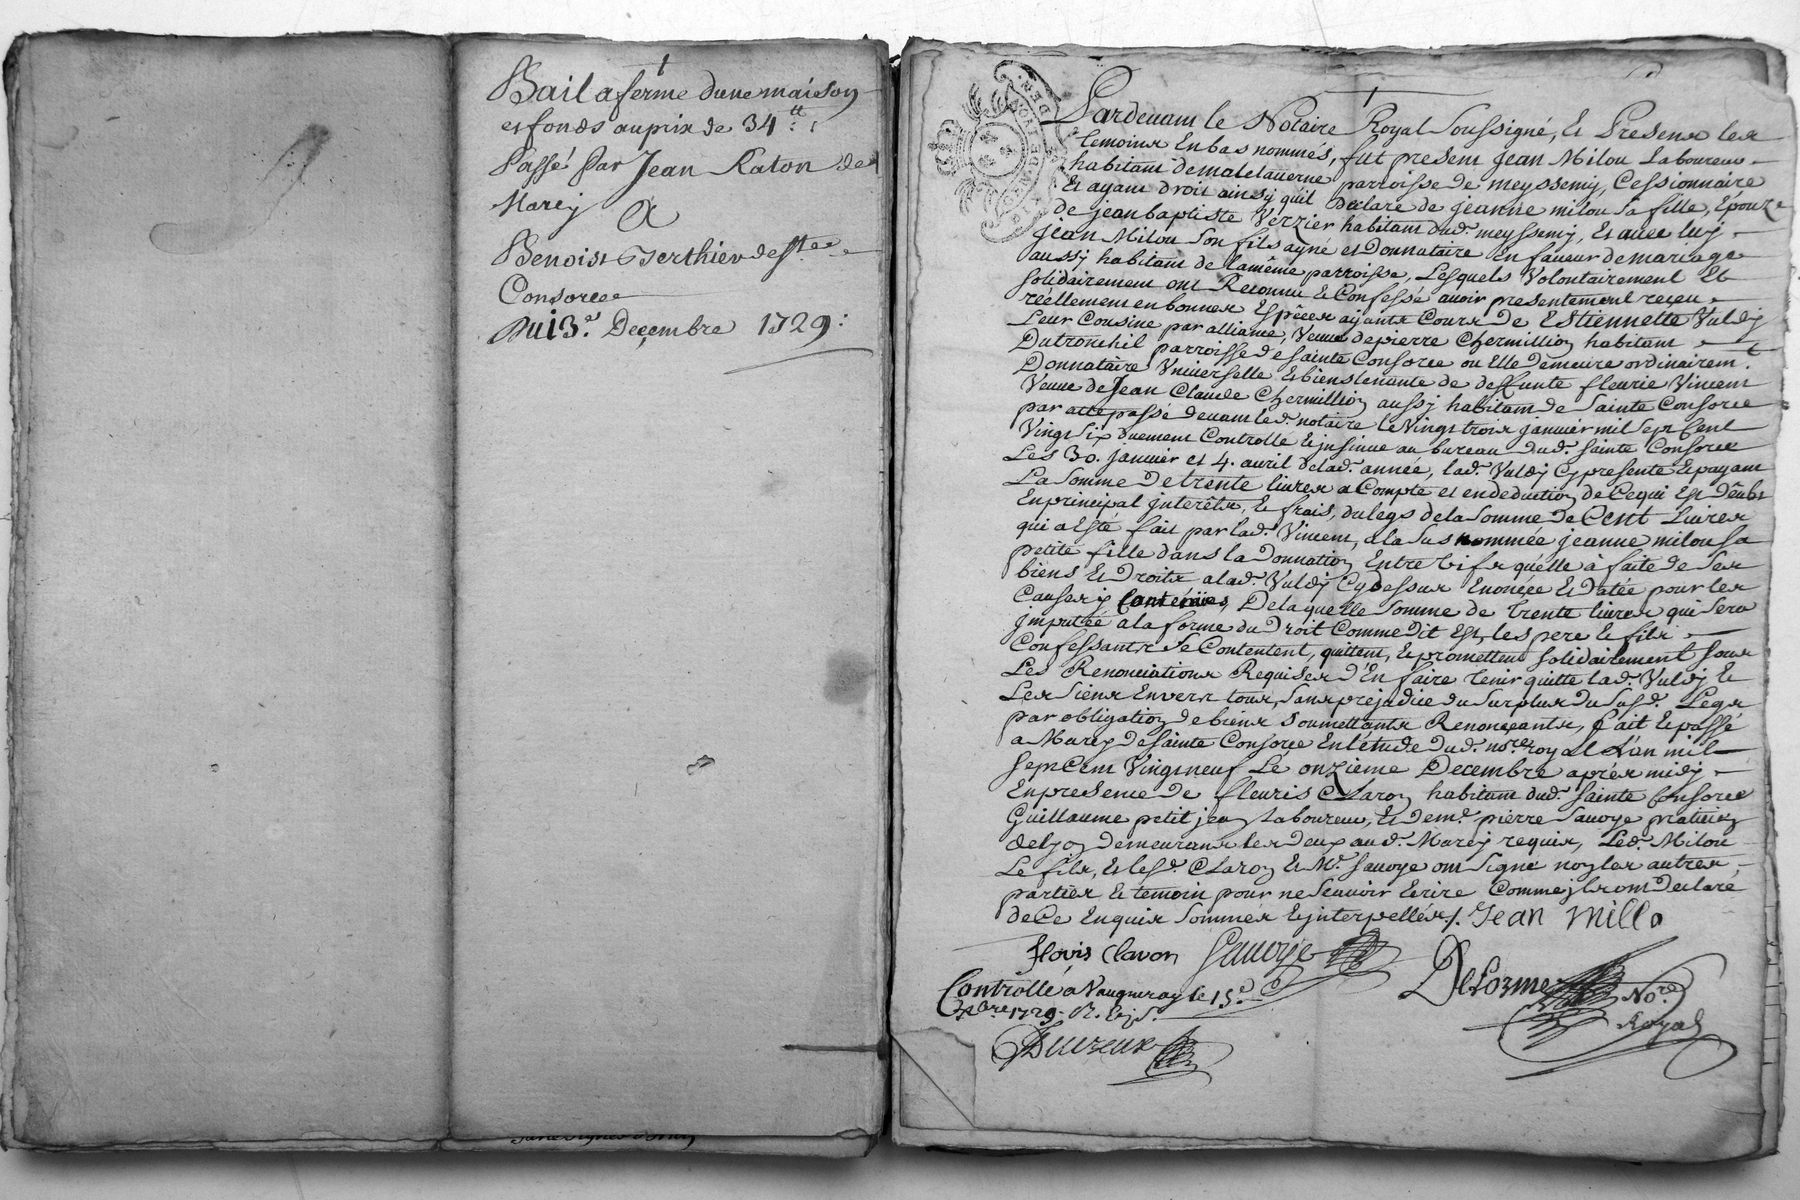 Bail a ferme dune maison
et fonds au prix de 34ᵗᵗ:s
Passé Par Jean Raton de
Marcy A
Benoist Berthier de Ste
Consorce
Du 13.e Decembre 1729:
Pardevant le Notaire Royal Soussigné, Et Presens les
temoins En bas nommés, fut present Jean Milou Laboureur
habitant de malelaverne parroisse de meyssemy, Cessionnaire
Et ayant droit ainsy qu'il Declare de jeanne milou sa fille, Epouze
de jean baptiste Verzier habitant dud. meyssemy, Et avec luy
jean Milou son fils ayné et Donnataire en faveur de mariage
aussy habitant de la même parroisse, Lesquels Volontairement Et
solidairement ont Reconnu & Confessé avoir presentement receu
réellement en bonnes Espèces ayants Cours de Estiennette Valdy
Leur Cousine par alliance, Veuve de pierre Chermillion habitant
Dutronchil parroisse de sainte Consorce ou Elle demeure ordinairem.t
Donnatàire Vniverselle & biens tenante de deffunte fleurie Vincent
Veuve de Jean Claude Chermillion aussy habitant de Sainte Consorce
par acte passé devant led. notaire le Vingt trois janvier mil sept Cent
Vingt six duement Controllé & jnsinué au bureau dud. Sainte Consorce
Les 30. janvier et 4. avril de lad. année, lad. Valdy cy presente & payant
La somme De trente livres a Compte et en deduction de Cequi Est dêubt
En principal jnterêts, & frais, du legs de la somme de Cent Livres
qui a Esté fait par lad. Vincent, a la sus nommée jeanne milou sa
petite fille dans la Donnation Entre Vifs qu'elle à faite de ses
biens & Droits a lad. Valdy Cy dessus Enoncée & Datée pour les
Causes y Contenües, De la quelle somme de trente livres qui sera
jmputée a la forme du Droit Comme dit Est, les pere & fils
Confessants Se Contentent, quittent, & promettent solidairement sous
Les Renonciations Requises d'En faire tenir quitte lad. Valdy &
Les Siens Envers tous, Sans prejudice du surplus du susd. Legs
par obligation de biens soumettants Renonçeants, fait & passé
a Marcy de sainte Consorce En l'étude dud. no.re Royal L'an mil
sept Cent Vingt neuf Le onzieme Decembre aprés midy
En presence de fleuris Claron habitant dud. sainte Consorce
Guillaume petit jean Laboureur, Et de m.e pierre Savoye praticien
de lyon demeurans les deux aud. Marcy requis, Led. Milou
Le fils, et lesd. Claron & M.e Savoye ont signé non les autres
parties & temoin pour ne Scavoir Ecrire Comme jls ont declaré
de Ce Enquis Sommés & jnterpellés./. Jean Millo
flovis Clavon Savoye
Delorme No.re
Royal
Controllé a Vaugneray le 15.e
Xbre 1729. R.